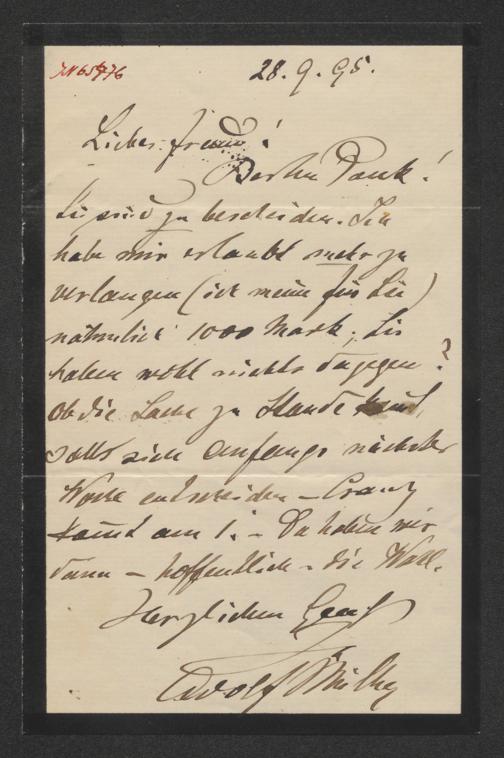 JN 65476
28. 9. 95.
Lieber Freund!
Besten Dank!
Sie sind zu bescheiden. Ich
habe mir erlaubt mehr zu
verlangen (ich meine für Sie)
nähmlich 1000 Mark; Sie
haben wohl nichts dagegen?
Ob die Sache zu Stande kommt,
soll sich anfangs nächster
Woche entscheiden – Cranz
kommt am 1. – Da haben wir
dann – hoffentlich – die Wahl.
Herzlichen Gruß
Adolf